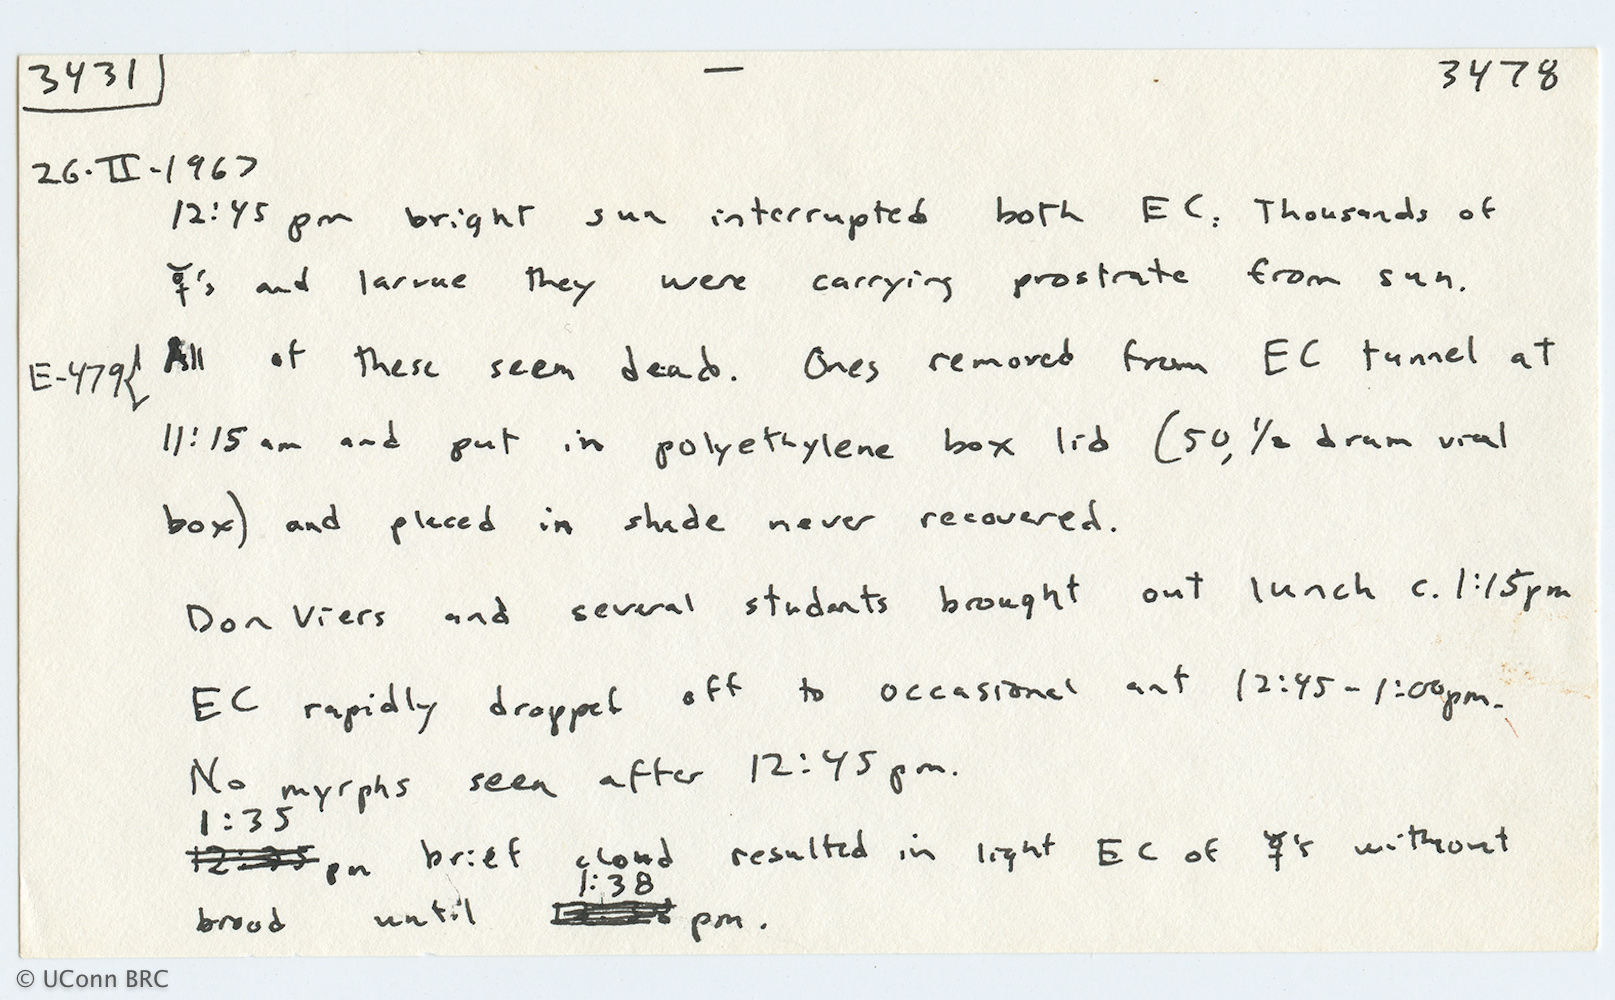 3431 — 3478
26·II·1967
12:45 pm bright sun interrupted both EC. Thousands of
☿'s and larvae they were carrying prostrate from sun.
E-479{ All of these seem dead. Ones removed from EC tunnel at
11:15 am and put in polyethylene box lid (50, ½ dram vial
box) and placed in shade never recovered.
Don Viers and several students brought out lunch c. 1:15pm
EC rapidly dropped off to occasional ant 12:45-1:00pm.
No myrphs seen after 12:45 pm.
1:35
pm brief cloud resulted in light EC of ☿'s without
1:38
brood until pm.
© UConn BRC